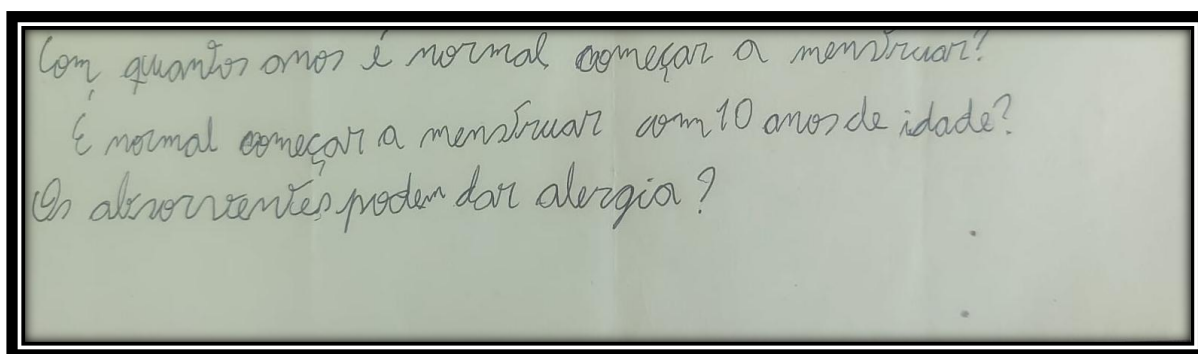 Com quantos anos é normal começar a menstruar?
É normal começar a menstruar com 10 anos de idade?
Os absorventes podem dar alergia?